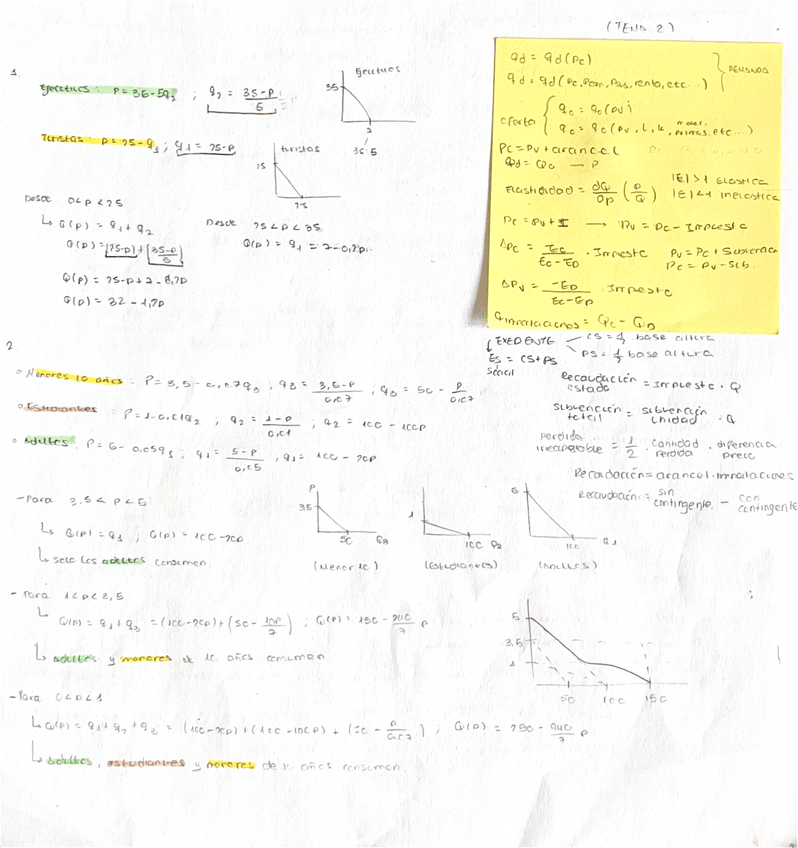 (TEMA 2)
1.
Ejecutivos: P = 35-5q2 ; q2 = 35-P / 5
Ejecutivos
35
7
35:5
Turistas: P = 25-q1 ; q1 = 25-P
turistas
25
25
Desde 0<P<25
↳ Q(P) = q1 + q2
Q(P) = (25-P) + (35-P / 5)
Q(P) = 25-P+7-0,2P
Q(P) = 32 - 1,2P
Desde 25<P<35
Q(P) = q1 = 7-0,2P
qd = qd(Pc)
qd = qd(Pc, Pcom, Psus, renta, etc...)
oferta
qo = qo(Pv)
qo = qo(Pv, L, K, mater. primas, etc...)
Pc = Pv + arancel
Qd = Qo → P
Elasticidad = dQ/dp (P/Q)
|E|>1 Elástica
|E|<1 inelástica
Pc = Pv + I → Pv = Pc - Impuesto
ΔPc = Eo / Eo-ED · Impuesto
Pv = Pc + Subvención
Pc = Pv - Sub.
ΔPv = -ED / Eo-ED · Impuesto
Qimportaciones = Qc - QD
EXEDENTE
CS = 1/2 base altura
PS = 1/2 base altura
ES = CS+PS
social
Recaudación estado = Impuesto · Q
Subvención total = subvención unidad · Q
Perdida irrecuperable = 1/2 · cantidad perdida · diferencia precio
Recaudación = arancel · importaciones
Recaudación = sin contingente - con contingente
2
○ Menores 10 años: P = 3,5 - 0,07q3 ; q3 = 3,5-P / 0,07 ; q3 = 50 - P / 0,07
○ Estudiantes: P = 1-0,01q2 ; q2 = 1-P / 0,01 ; q2 = 100 - 100P
○ Adultos: P = 5-0,05q1 ; q1 = 5-P / 0,05 ; q1 = 100 - 20P
- Para 3,5 < P < 5
↳ Q(P) = q1 ; Q(P) = 100-20P
↳ Solo los adultos consumen.
P
35
50
Q3
(Menor 10)
1
100
Q2
(Estudiantes)
5
100
Q1
(Adultos)
- Para 1<P<3,5
↳ Q(P) = q1 + q3 = (100-20P) + (50 - 100P / 7) ; Q(P) = 150 - 240/7 P
↳ adultos y menores de 10 años consumen
5
3,5
1
50 100 150
- Para 0<P<1
↳ Q(P) = q1 + q2 + q3 = (100-20P) + (100-100P) + (50 - P / 0,07) ; Q(P) = 250 - 940/7 P
↳ adultos, estudiantes y menores de 10 años consumen.